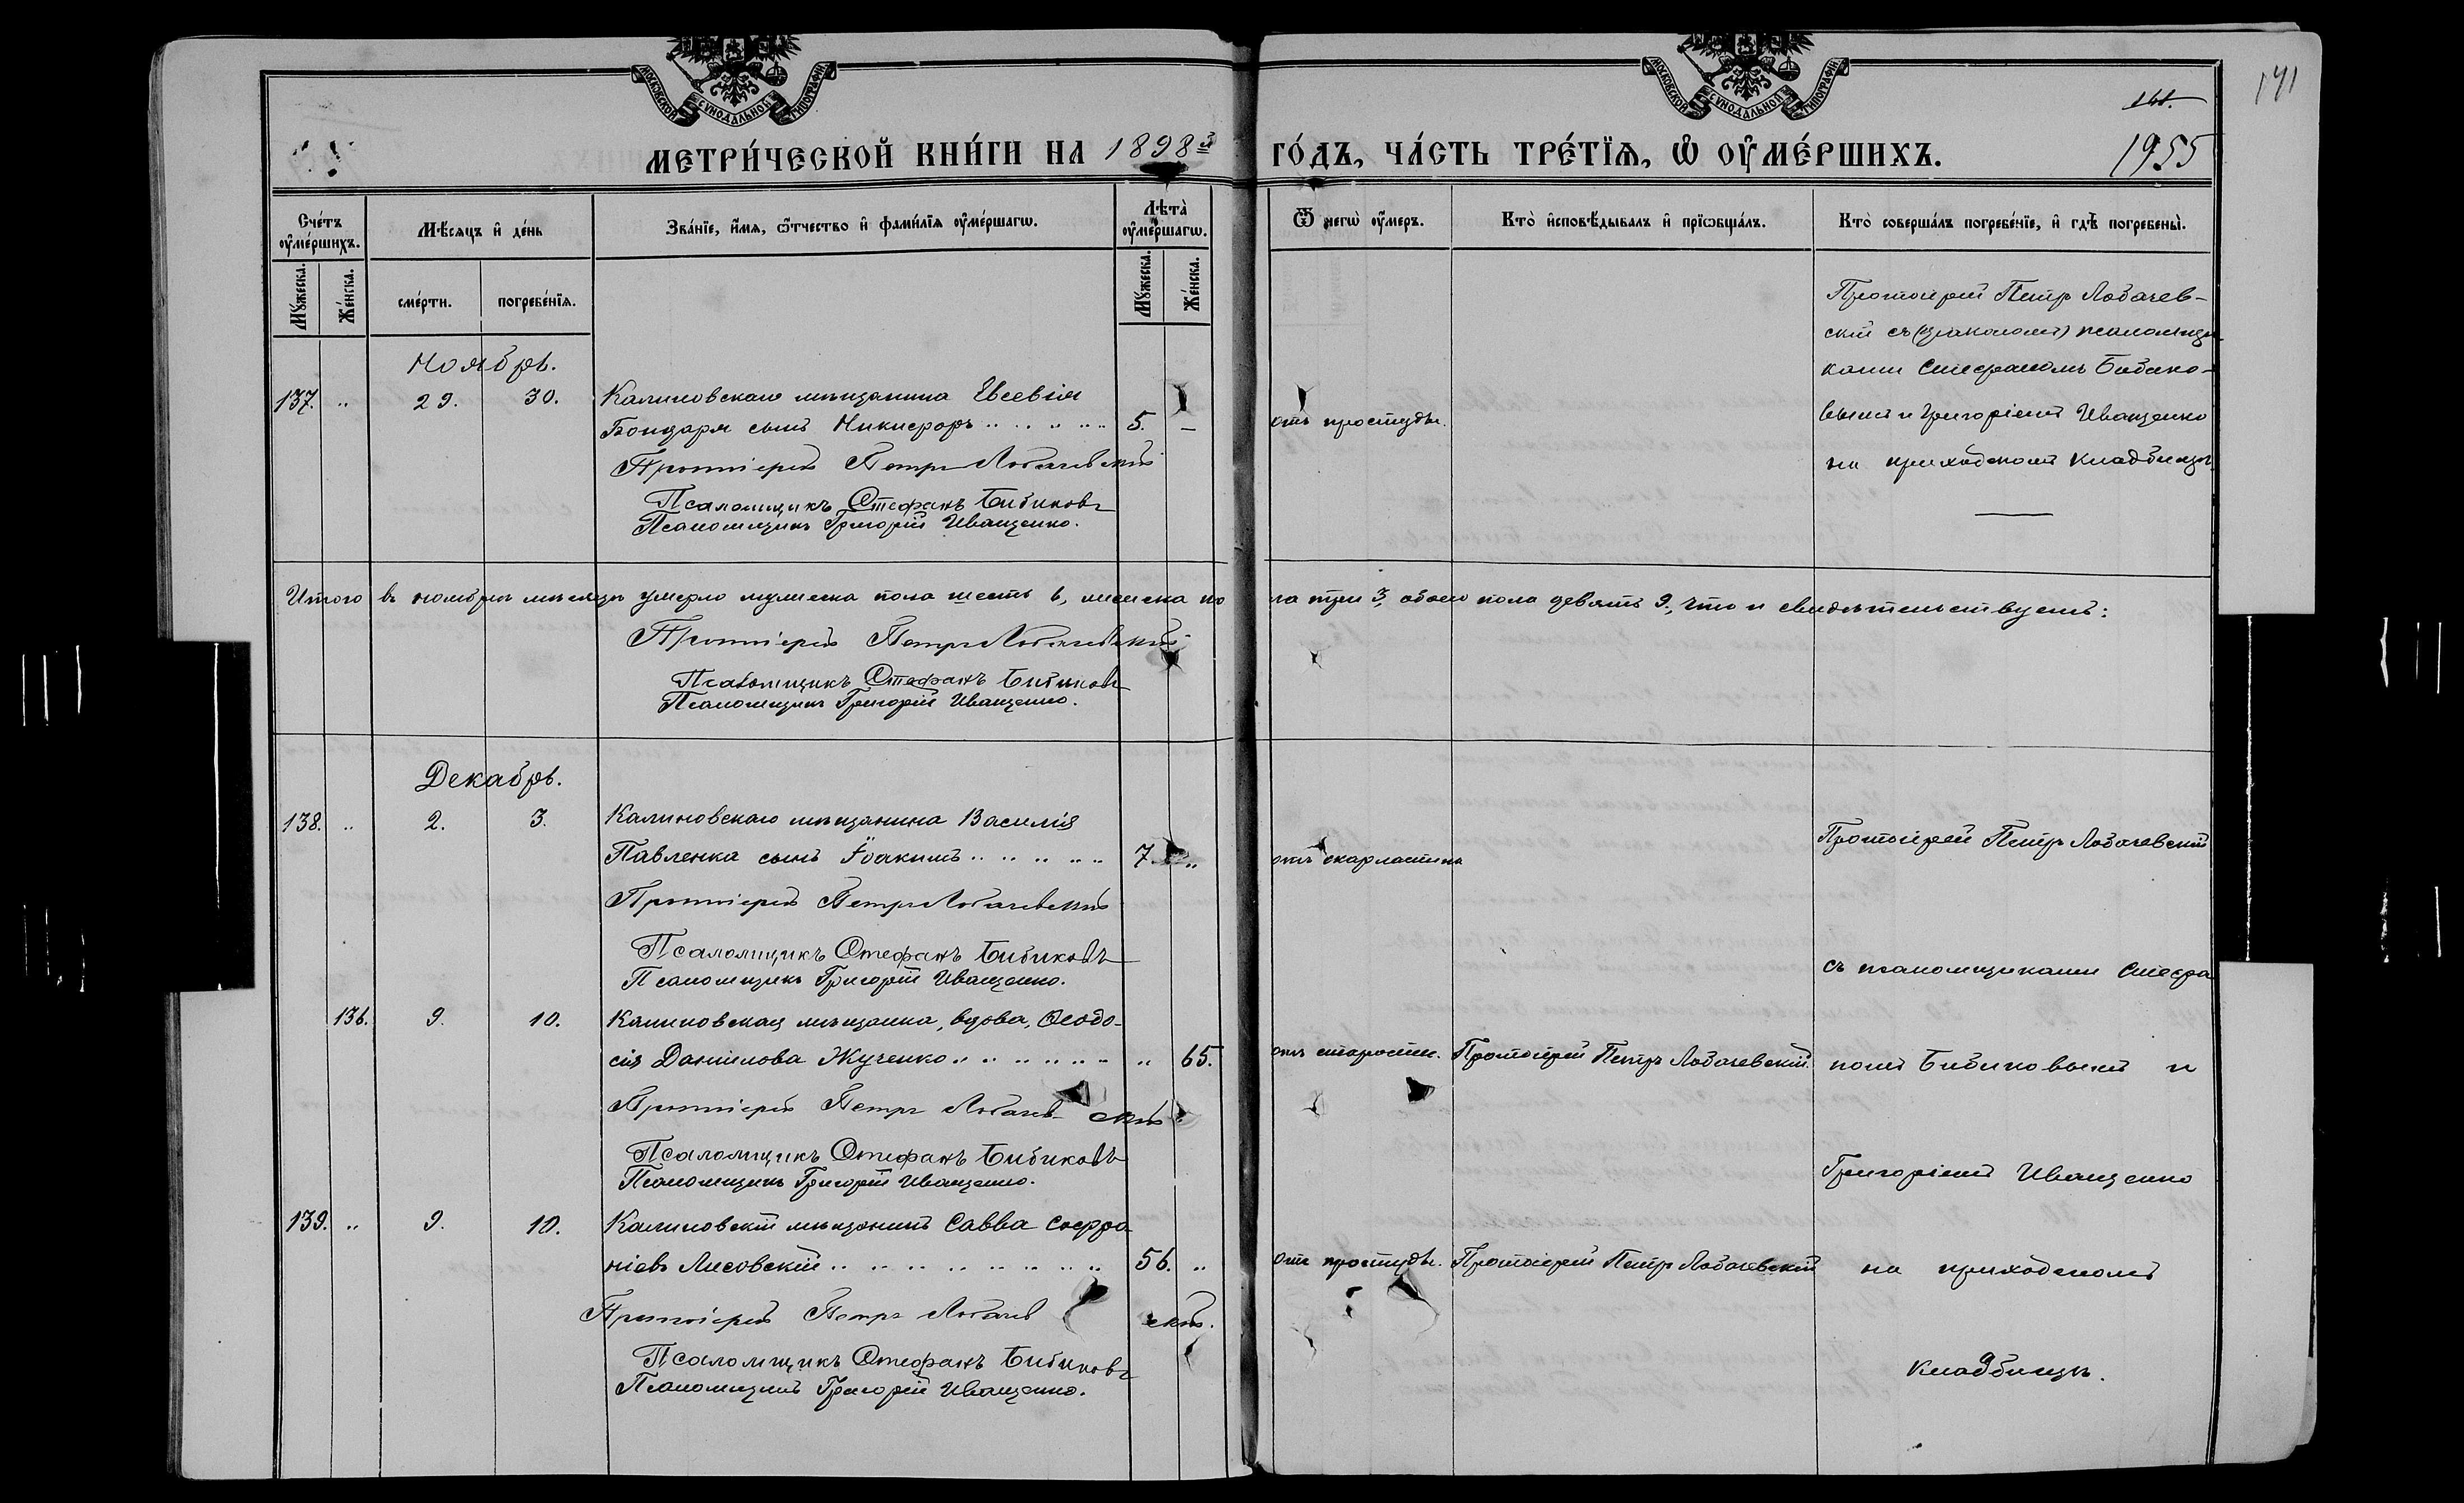 МОСКОВСКОЙ СѴНОДАЛЬНОЙ ТИПОГРАФІИ
МОСКОВСКОЙ СѴНОДАЛЬНОЙ ТИПОГРАФІИ
141
161.
МЕТРИ́ЧЕСКОЙ КНИ́ГИ НА 1898й ГО́ДЪ, ЧА́СТЬ ТРЕ́ТЇѦ, Ѡ҆ ОУ҆МЕ́РШИХЪ.
1955
Сче́тъ оу҆ме́ршихъ.
Мѣ́сѧцъ и҆ де́нь
Зва́нїе, и҆́мѧ, ѻ҆́тчество и҆ фами́лїѧ оу҆ме́ршагѡ.
Лѣ̑та оу҆ме́ршагѡ.
Ѿ чегѡ̀ оу҆́меръ.
Кто̀ и҆сповѣ́дывалъ и҆ прїѡбща́лъ.
Кто̀ соверша́лъ погребе́нїе, и҆ гдѣ̀ погребены̀.
Мꙋ́жеска.
Же́нска.
сме́рти.
погребе́нїѧ.
Мꙋ́жеска.
Же́нска.
Протоіерей Петръ Лобачев-
скій съ (діакономъ) псаломщи-
Ноябрь.
ками Стефаномъ Бибико-
137. " 29. 30. Калиновскаго мѣщанина Евсевія
вымъ и Григоріемъ Иващенко
Бондаря сынъ Никифоръ 5. – отъ простуды.
на приходскомъ кладбищѣ
Протоіерей Петръ Лобачевскій
Псаломщикъ Стефанъ Бибиковъ
Псаломщикъ Григорій Иващенко.
Итого въ ноябрѣ мѣсяцѣ умерло мужеска пола шесть 6, женска пола три 3, обоего пола девять 9., что и свидѣтельствуемъ:
Протоіерей Петръ Лобачевскій
Псаломщикъ Стефанъ Бибиковъ
Псаломщикъ Григорій Иващенко.
Декабрь.
138. " 2. 3. Калиновскаго мѣщанина Василія
Павленка сынъ Іоакимъ 7. " отъ скарлатины Протоіерей Петръ Лобачевскій
Протоіерей Петръ Лобачевскій
Псаломщикъ Стефанъ Бибиковъ
Псаломщикъ Григорій Иващенко.
съ псаломщиками Стефа
136. 9. 10. Калиновская мѣщанка, вдова, Ѳеодо-
сія Даніилова Жученко " 65. отъ старости. Протоіерей Петръ Лобачевскій. номъ Бибиковымъ и
Протоіерей Петръ Лобачев- скій
Псаломщикъ Стефанъ Бибиковъ
Псаломщикъ Григорій Иващенко.
Григоріемъ Иващенко
139. " 9. 10. Калиновскій мѣщанинъ Савва Софро
ніевъ Лисовскій 56. " отъ простуды. Протоіерей Петръ Лобачевскій на приходскомъ
Протоіерей Петръ Лобачев скій.
Псаломщикъ Стефанъ Бибиковъ
кладбищѣ.
Псаломщикъ Григорій Иващенко.